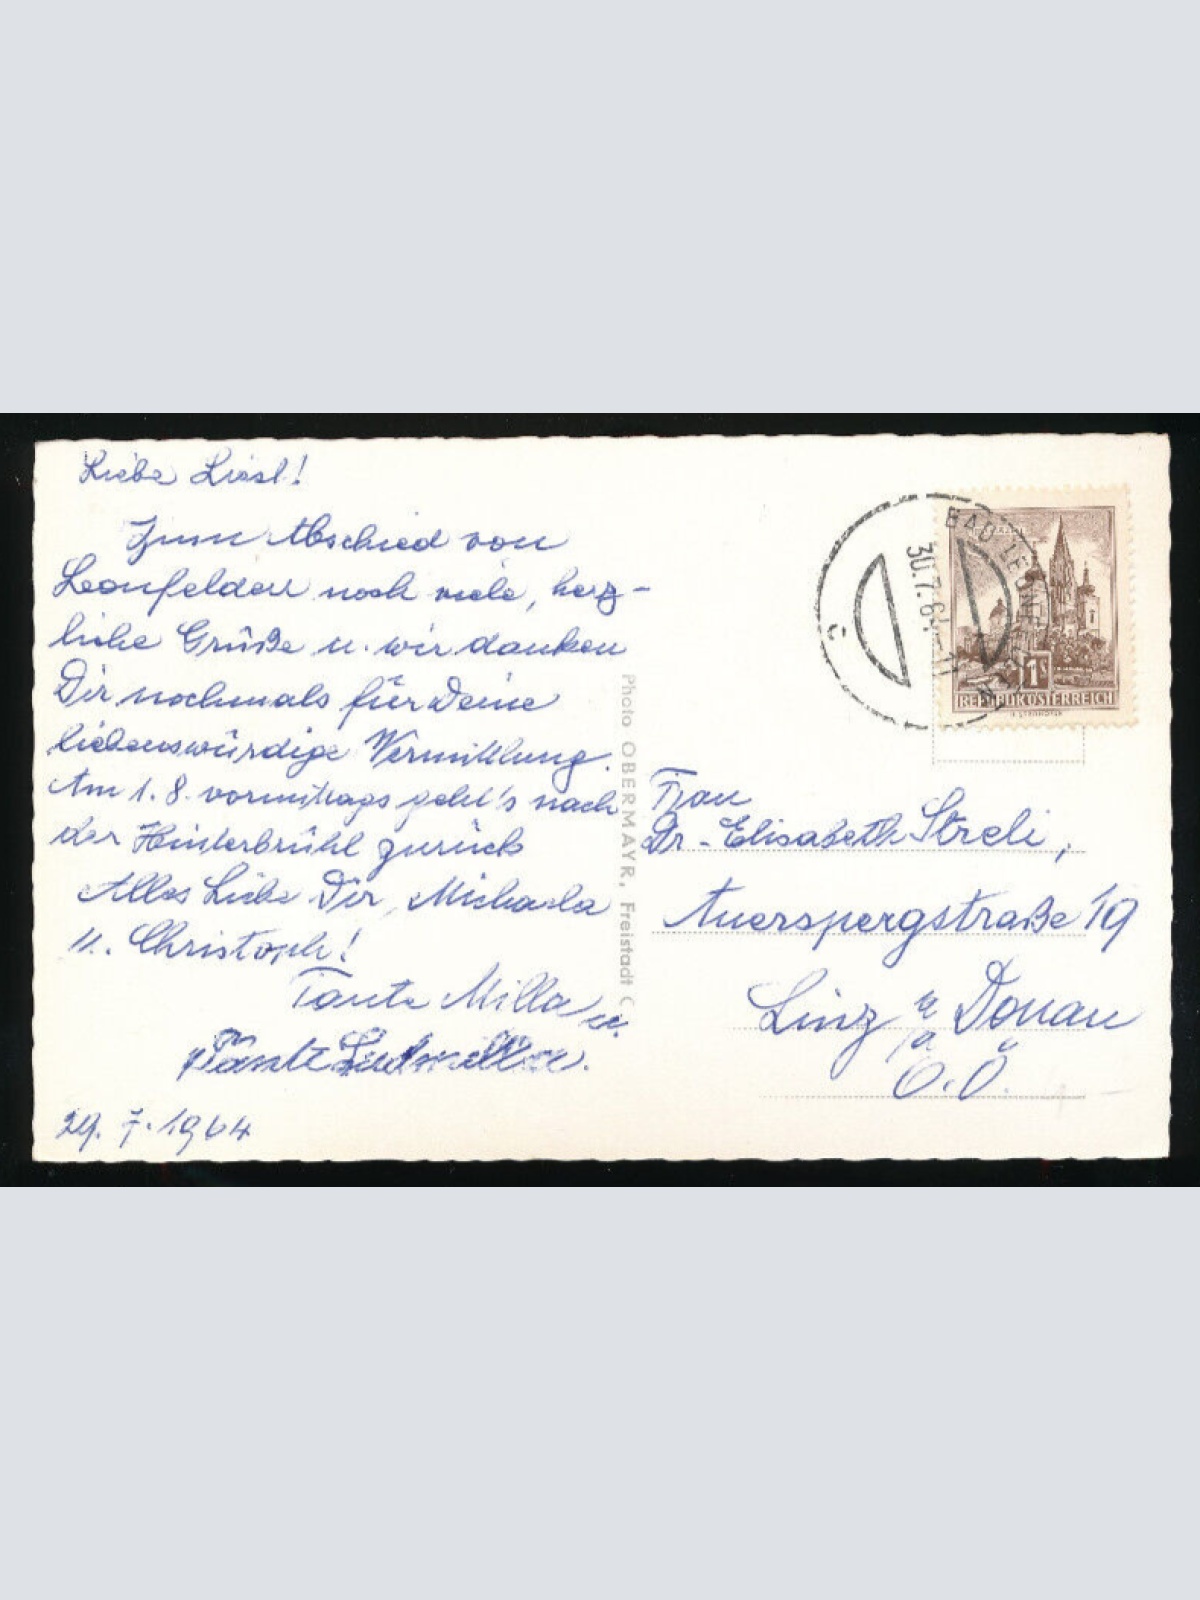 Liebe Liesl!
Zum Abschied von
Leonfelden noch viele, herz-
liche Grüße u. wir danken
Dir nochmals für Deine
liebenswürdige Vermittlung.
Am 1.8. vormittags geht's nach
der Hinterbrühl zurück
Alles Liebe Dir, Michaela
u. Christoph!
Tante Milla u.
Tante Ludmilla.
29.7.1964
Photo OBERMAYR, Freistadt
BAD LEONFELDEN
30.7.64-11
c
1S
REPUBLIK ÖSTERREICH
Frau
Dr. Elisabeth Streli,
Auerspergstraße 19
Linz a/a Donau
O.Ö.